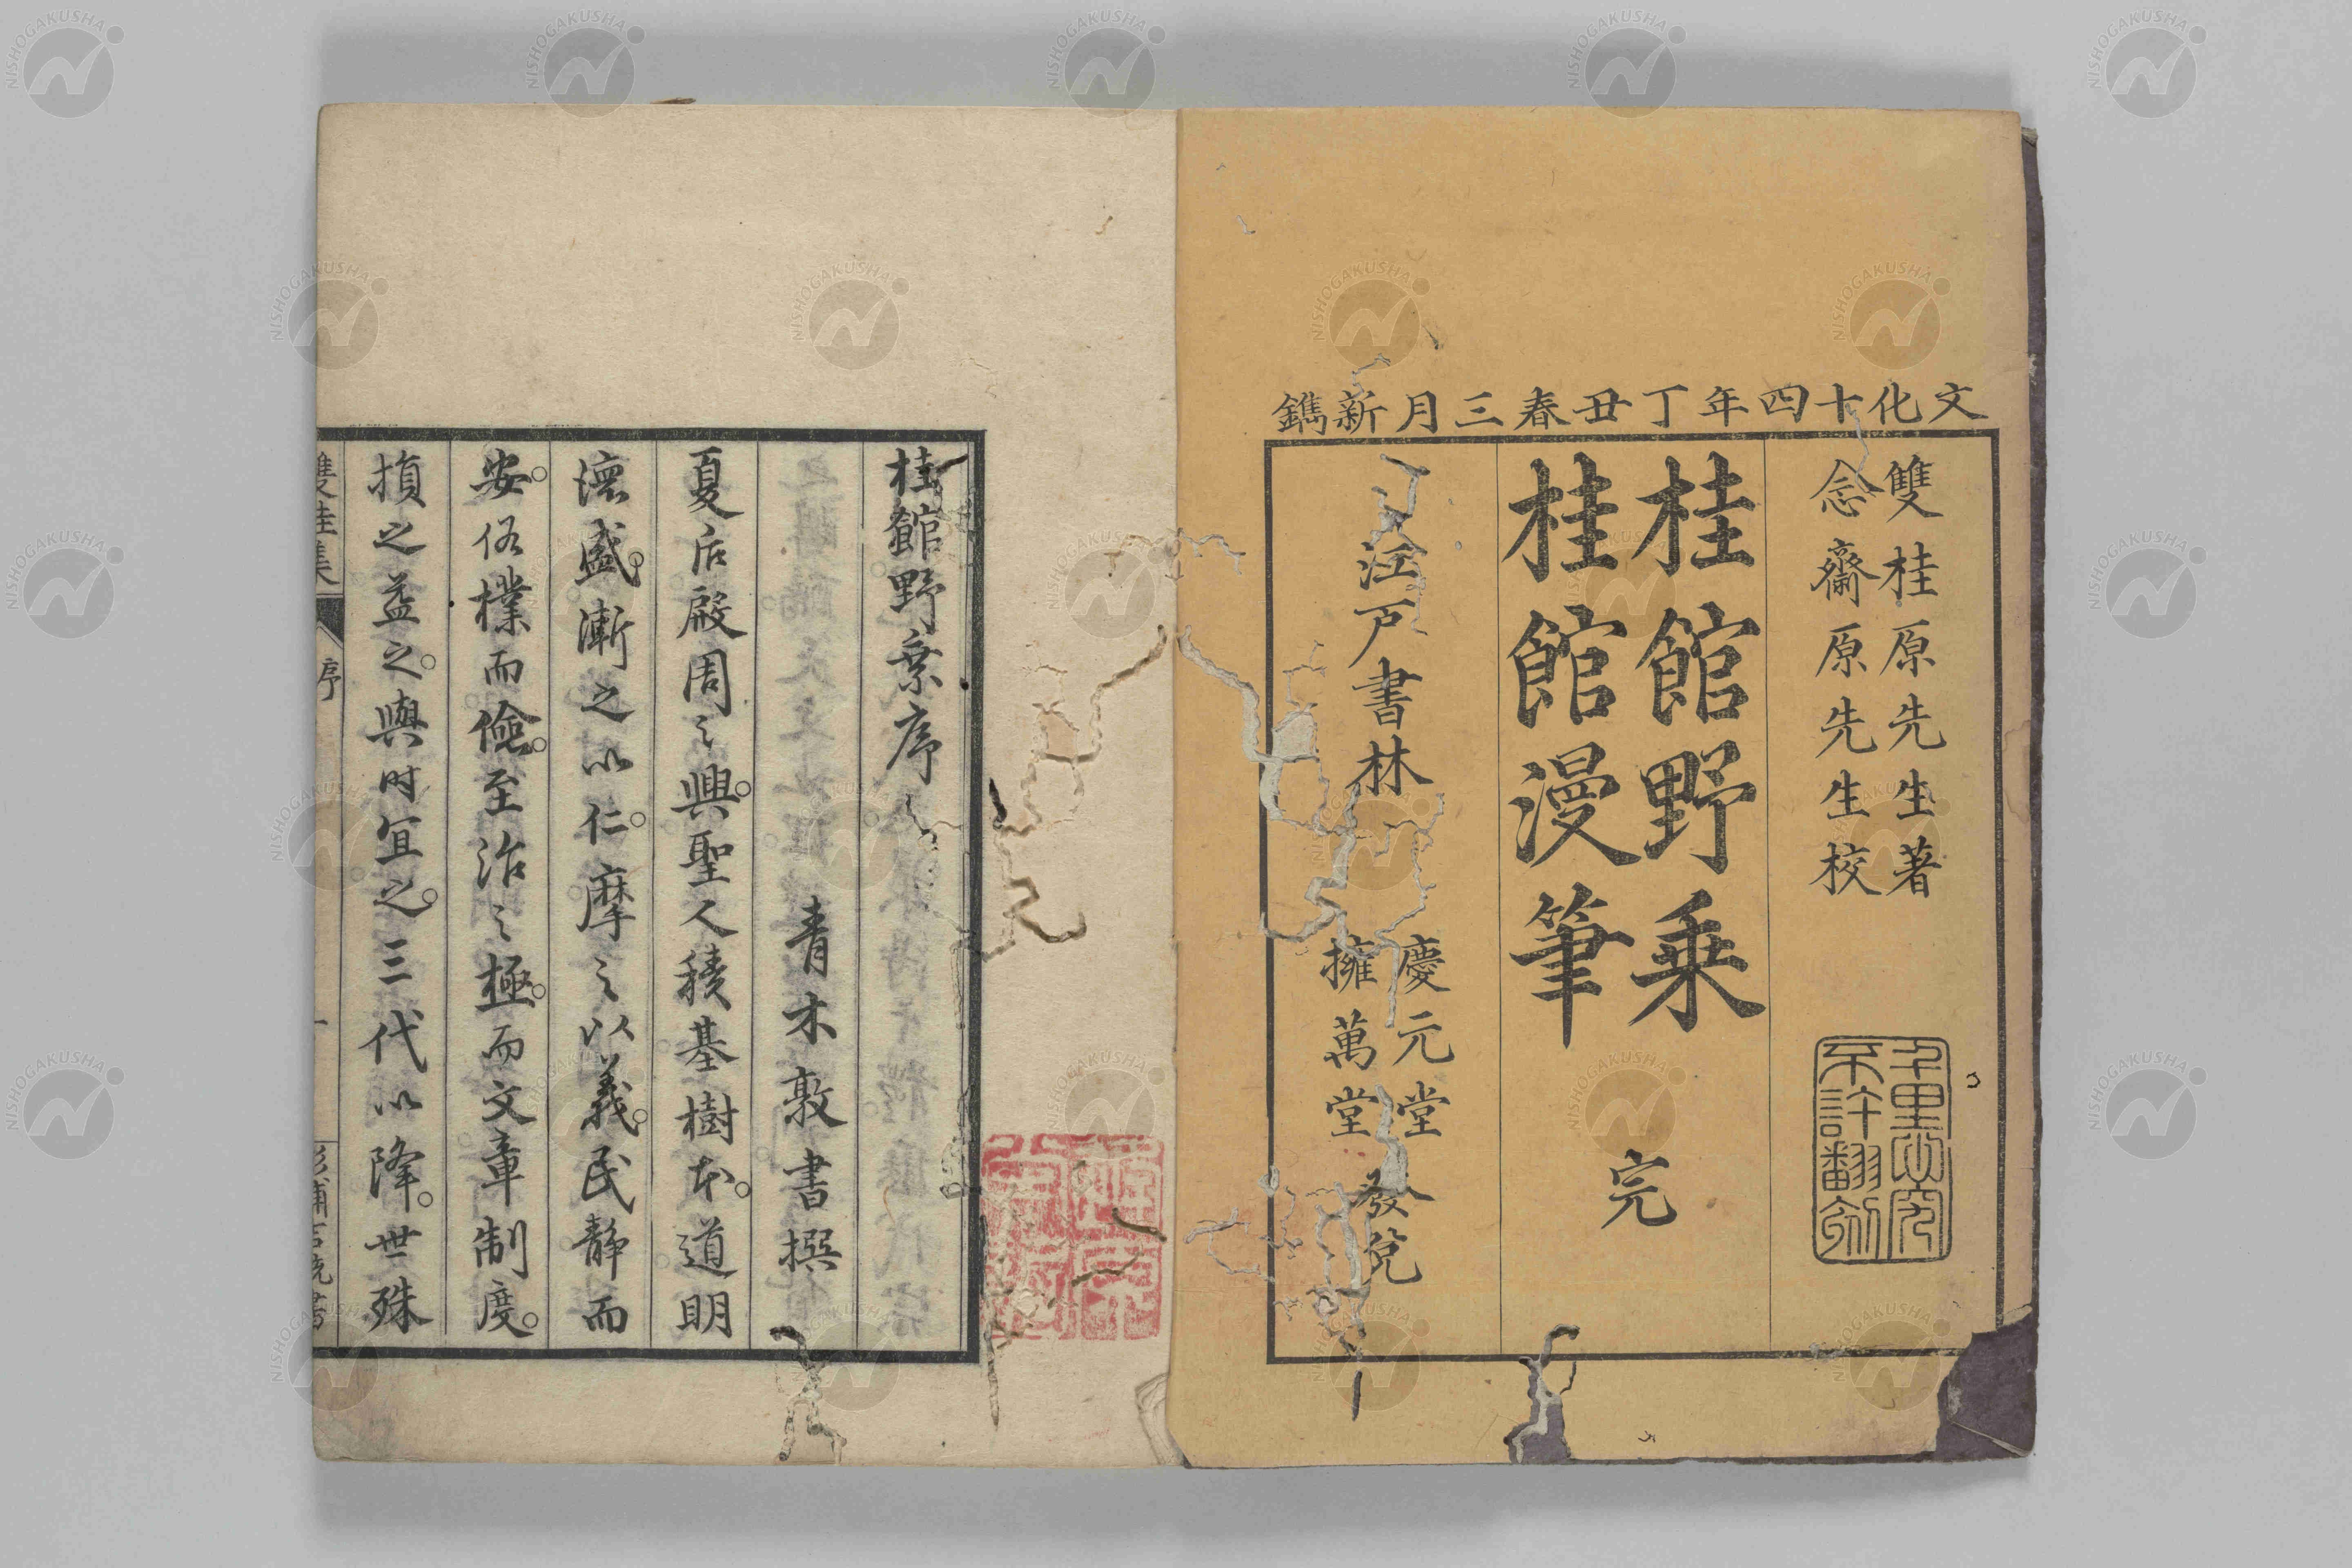 文化十四年丁丑春三月新鐫
雙桂原先生著
念齋原先生校
千里必究
不許翻刻
桂館野乗
桂館漫筆
完
江戸書林
慶元堂
擁萬堂
發兌
桂館野乗序
青木敦書撰
夏后殷周之興聖人積基樹本道明
澤盛漸之以仁摩之以義民静而
安俗樸而儉至治之極而文章制度
損之益之與时宜之三代以降世殊
雙桂集
序
一
NISHOGAKUSHA